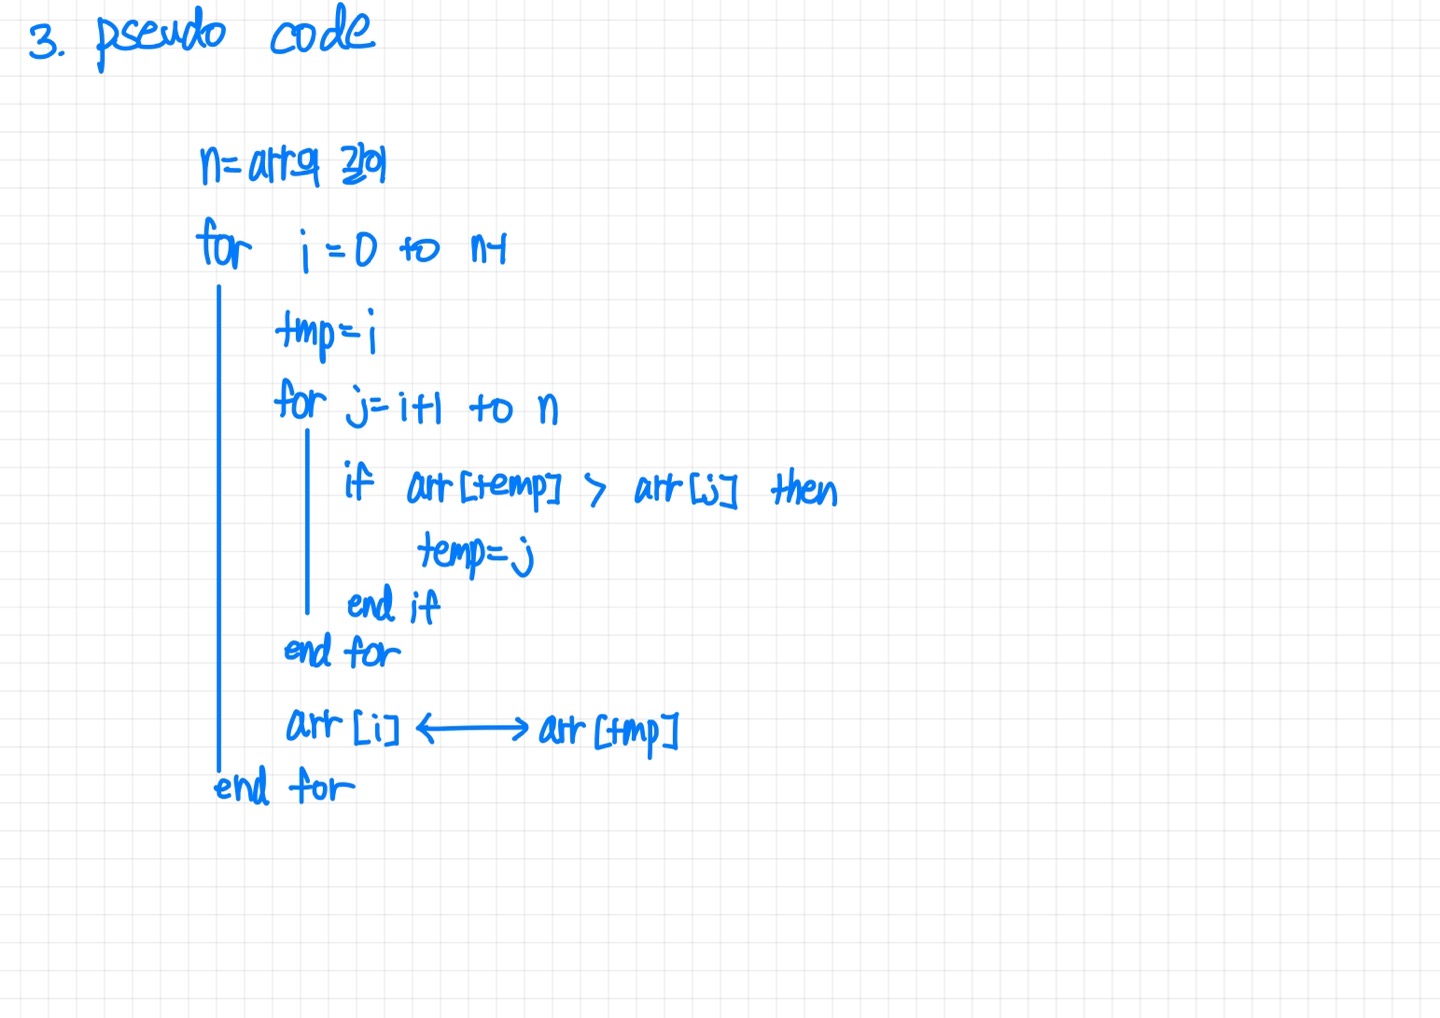 3. pseudo code
n=arr의 길이
for i=0 to n-1
tmp=i
for j=i+1 to n
if arr[temp] > arr[j] then
temp=j
end if
end for
arr[i] ⟷ arr[tmp]
end for